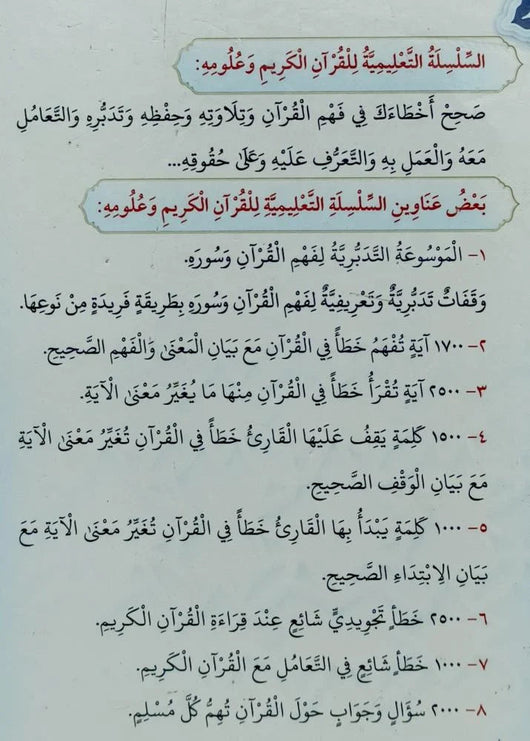 السِّلْسِلَةُ التَّعْلِيمِيَّةُ لِلْقُرْآنِ الْكَرِيمِ وَعُلُومِهِ:
صَحِحْ أَخْطَاءَكَ فِي فَهْمِ الْقُرْآنِ وَتِلَاوَتِهِ وَحِفْظِهِ وَتَدَبُّرِهِ وَالتَّعَامُلِ
مَعَهُ وَالْعَمَلِ بِهِ وَالتَّعَرُّفِ عَلَيْهِ وَعَلَى حُقُوقِهِ...
بَعْضُ عَنَاوِينِ السِّلْسِلَةِ التَّعْلِيمِيَّةِ لِلْقُرْآنِ الْكَرِيمِ وَعُلُومِهِ:
١- الْمَوْسُوعَةُ التَّدَبُّرِيَّةُ لِفَهْمِ الْقُرْآنِ وَسُورَهِ.
وَقَفَاتٌ تَدَبُّرِيَّةٌ وَتَعْرِيفِيَّةٌ لِفَهْمِ الْقُرْآنِ وَسُورِهِ بِطَرِيقَةٍ فَرِيدَةٍ مِنْ نَوعِهَا.
٢- ١٧٠٠ آيَةٍ تُفْهَمُ خَطَأً فِي الْقُرْآنِ مَعَ بَيَانِ الْمَعْنَى وَالْفَهْمِ الصَّحِيحِ.
٣- ٢٥٠٠ آيَةٍ تُقْرَأُ خَطَأً فِي الْقُرْآنِ مِنْهَا مَا يُغَيِّرُ مَعْنَى الْآيَةِ.
٤- ١٥٠٠ كَلِمَةٍ يَقِفُ عَلَيْهَا الْقَارِئُ خَطَأً فِي الْقُرْآنِ تُغَيِّرُ مَعْنَى الْآيَةِ
مَعَ بَيَانِ الْوَقْفِ الصَّحِيحِ.
٥- ١٠٠٠ كَلِمَةٍ يَبْدَأُ بِهَا الْقَارِئُ خَطَأً فِي الْقُرْآنِ تُغَيِّرُ مَعْنَى الْآيَةِ مَعَ
بَيَانِ الِابْتِدَاءِ الصَّحِيحِ.
٦- ٢٥٠٠ خَطَأٍ تَجْوِيدِيٍّ شَائِعٍ عِنْدَ قِرَاءَةِ الْقُرْآنِ الْكَرِيمِ.
٧- ١٠٠٠ خَطَأٍ شَائِعٍ فِي التَّعَامُلِ مَعَ الْقُرْآنِ الْكَرِيمِ.
٨- ٢٠٠٠ سُؤَالٍ وَجَوَابٍ حَوْلَ الْقُرْآنِ تُهِمُّ كُلَّ مُسْلِمٍ.